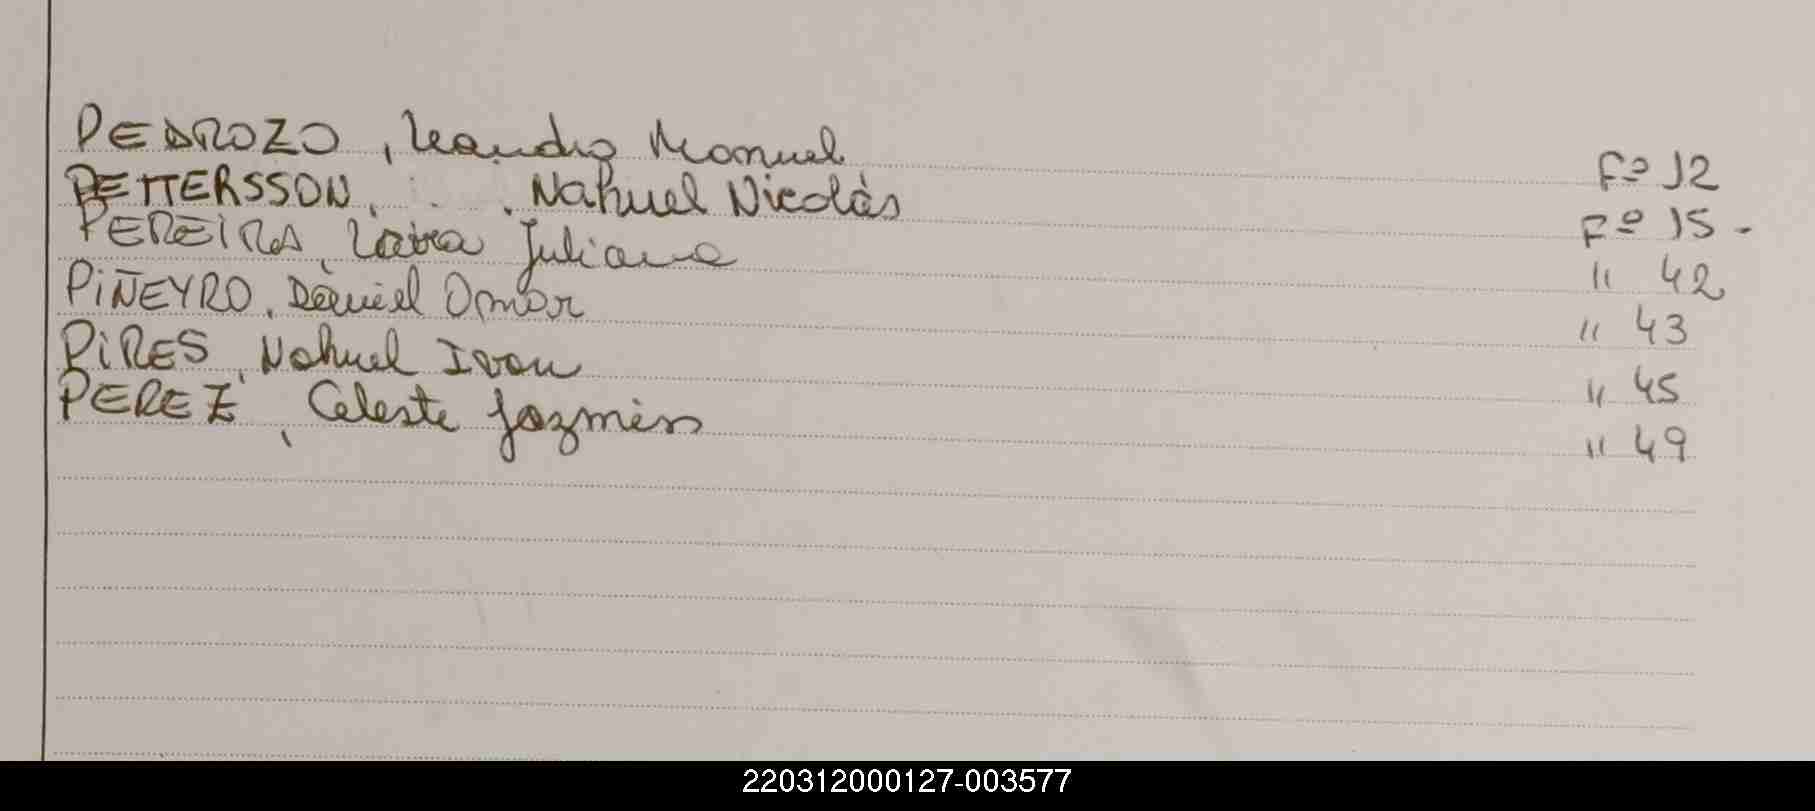 PEDROZO, Leandro Manuel Fº 12
PETTERSSON, Nahuel Nicolás Fº 15-
PEREIRA, Juliana " 42
PIÑEYRO, Daniel Omar " 43
PIRES, Nahuel Ivan " 45
PEREZ, Celeste Jazmín " 49
220312000127-003577